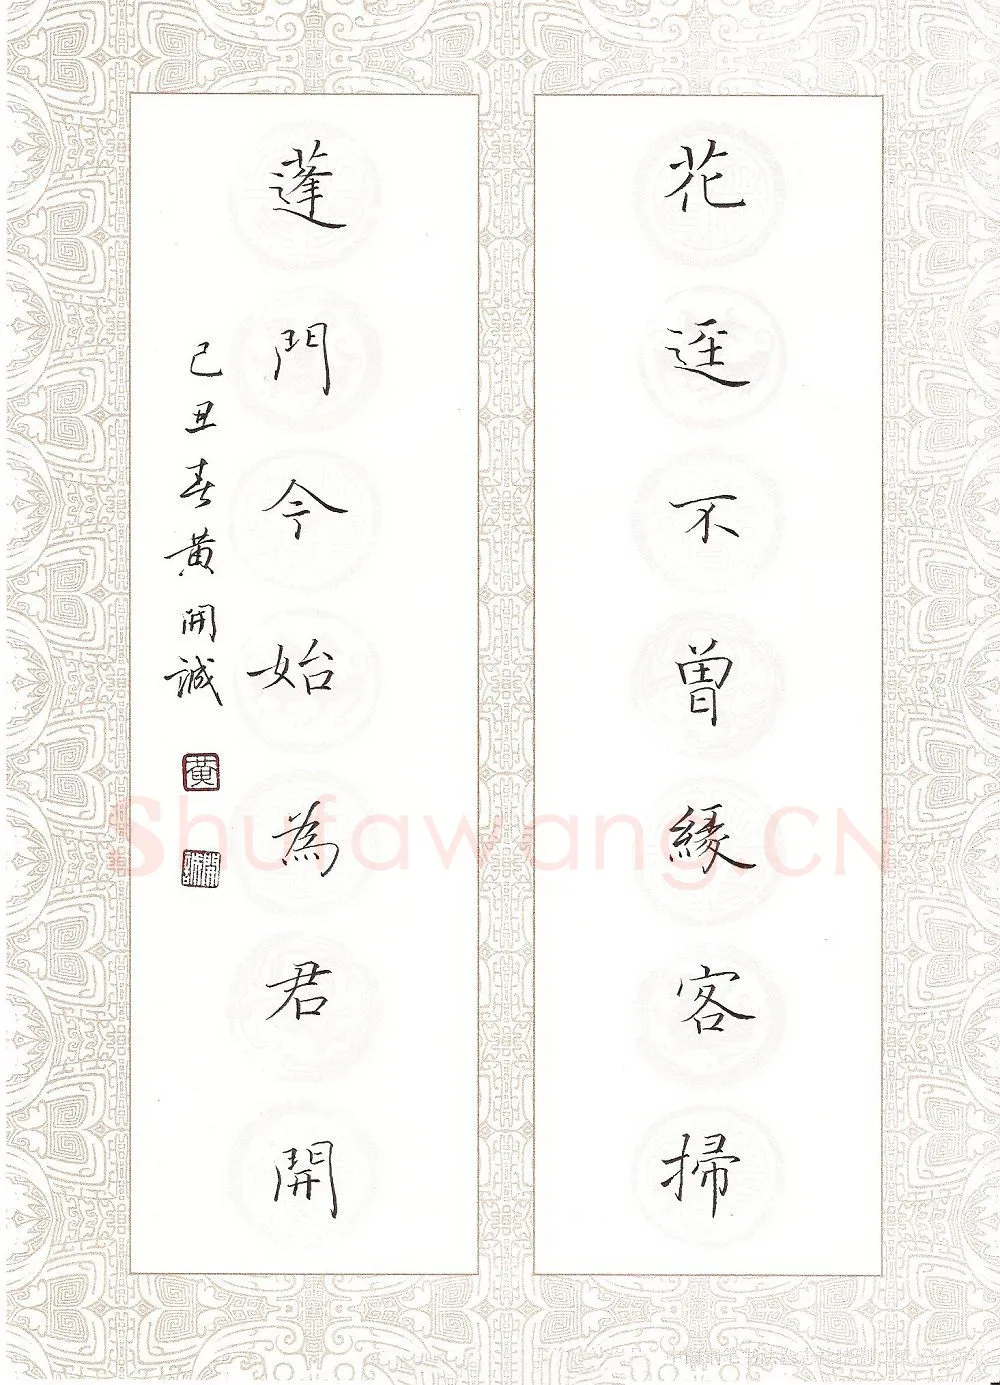 花迳不曾緣客掃
蓬門今始為君開
己丑春黃開誠
黃
Shufawang.CN